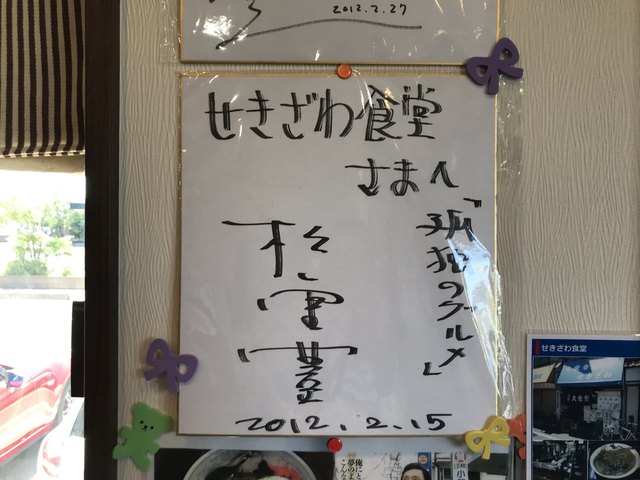 2012.2.27
せきざわ食堂
さまへ
「孤独のグルメ」
松重豊
2012.2.15
せきざわ食堂